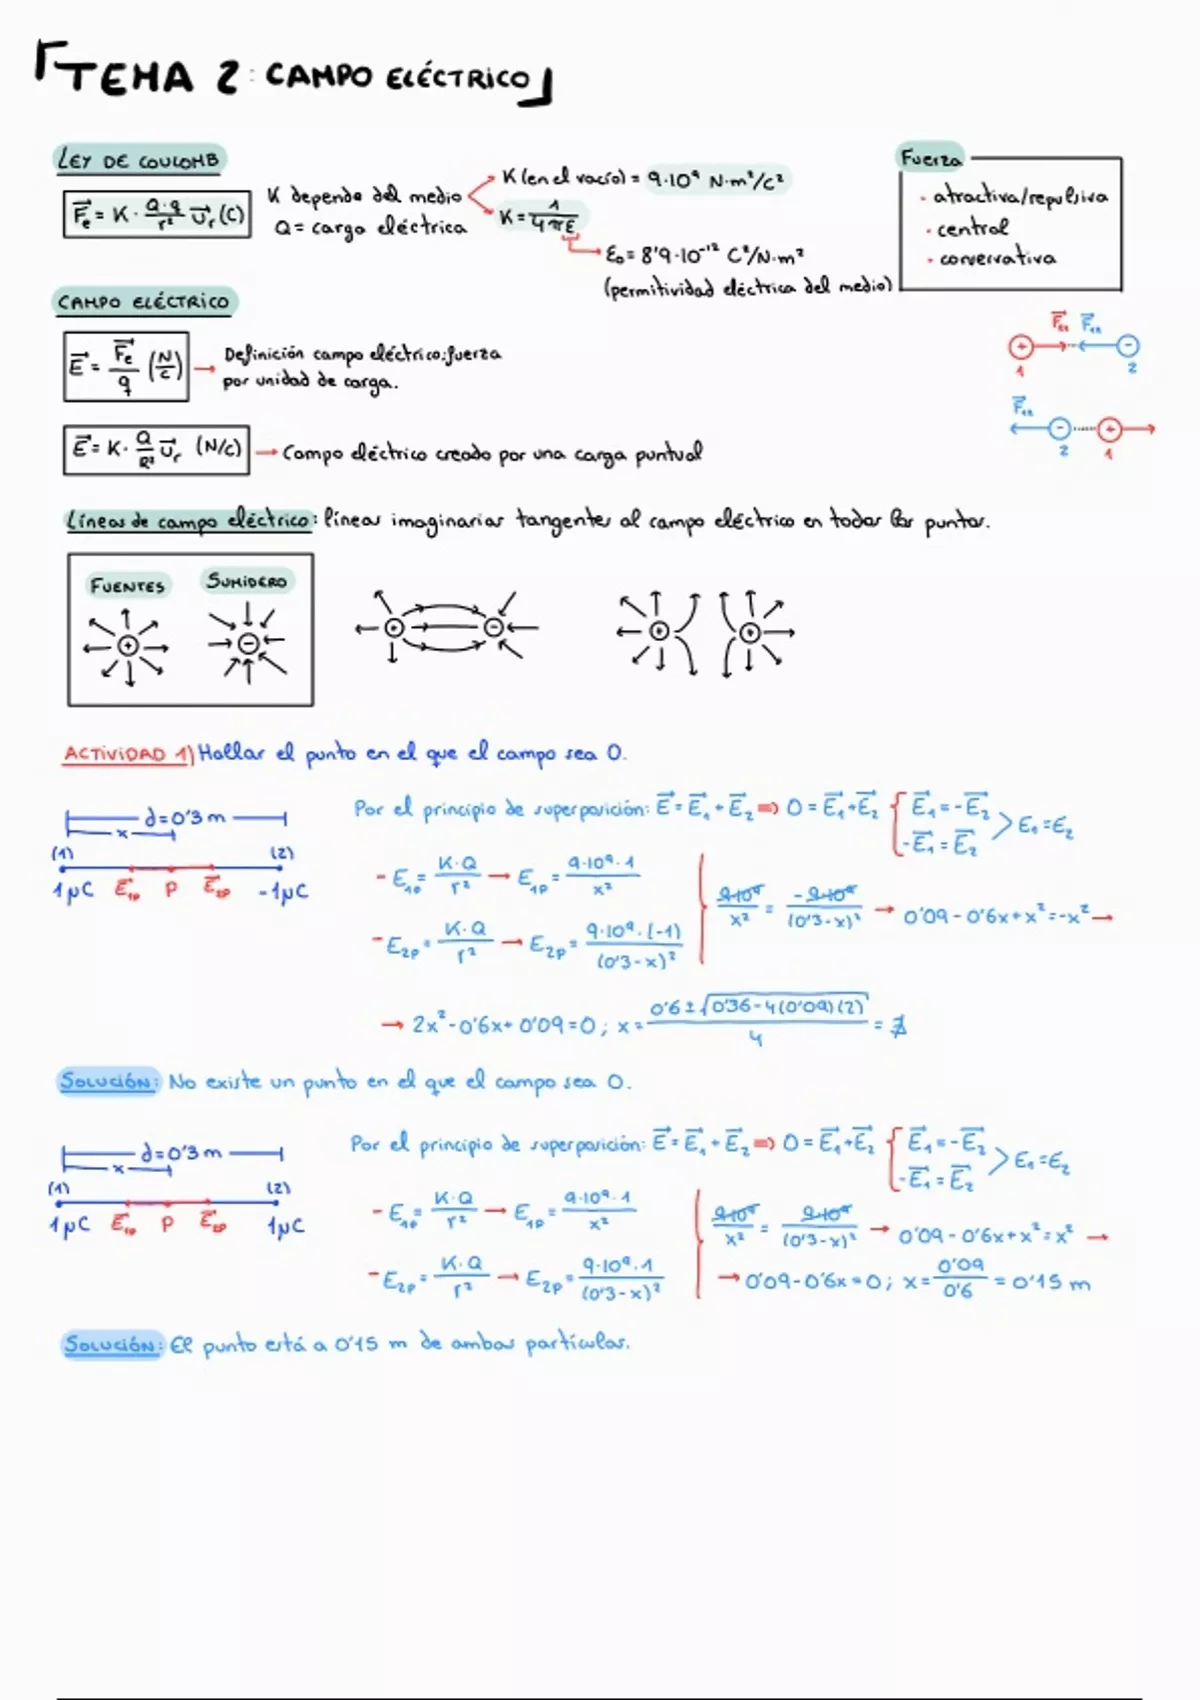 「TEMA 2: CAMPO ELÉCTRICO」
LEY DE COULOMB
F⃗e = K · Q·q/r² u⃗r (C)
K depende del medio
Q = carga eléctrica
K (en el vacío) = 9·10⁹ N·m²/C²
K = 1/4πε
ε₀ = 8'9·10⁻¹² C²/N·m²
(permitividad eléctrica del medio)
Fuerza
· atractiva/repulsiva
· central
· conservativa
CAMPO ELÉCTRICO
E⃗ = F⃗e/q (N/C) → Definición campo eléctrico: fuerza
por unidad de carga.
+ -
1 2
E⃗ = K · Q/R² u⃗r (N/C) → Campo eléctrico creado por una carga puntual
- +
2 1
Líneas de campo eléctrico: líneas imaginarias tangentes al campo eléctrico en todos los puntos.
FUENTES SUMIDERO
+ - + - + +
ACTIVIDAD 1) Hallar el punto en el que el campo sea 0.
d = 0'3 m
x
(1) (2)
1μC E⃗1P P E⃗2P -1μC
Por el principio de superposición: E⃗ = E⃗₁ + E⃗₂ ⇒ 0 = E⃗₁ + E⃗₂ { E⃗₁ = -E⃗₂
-E⃗₁ = E⃗₂ > E₁ = E₂
- E1P = K·Q/r² → E1P = 9·10⁹·1/x²
- E2P = K·Q/r² → E2P = 9·10⁹·(-1)/(0'3-x)²
9·10⁹/x² = -9·10⁹/(0'3-x)² → 0'09 - 0'6x + x² = -x² →
→ 2x² - 0'6x + 0'09 = 0; x = 0'6 ± √0'36 - 4(0'09)(2)/4 = ∄
SOLUCIÓN: No existe un punto en el que el campo sea 0.
d = 0'3 m
x
(1) (2)
1μC E⃗1P P E⃗2P 1μC
Por el principio de superposición: E⃗ = E⃗₁ + E⃗₂ ⇒ 0 = E⃗₁ + E⃗₂ { E⃗₁ = -E⃗₂
-E⃗₁ = E⃗₂ > E₁ = E₂
- E1P = K·Q/r² → E1P = 9·10⁹·1/x²
- E2P = K·Q/r² → E2P = 9·10⁹·1/(0'3-x)²
9·10⁹/x² = 9·10⁹/(0'3-x)² → 0'09 - 0'6x + x² = x² →
→ 0'09 - 0'6x = 0; x = 0'09/0'6 = 0'15 m
SOLUCIÓN: El punto está a 0'15 m de ambas partículas.